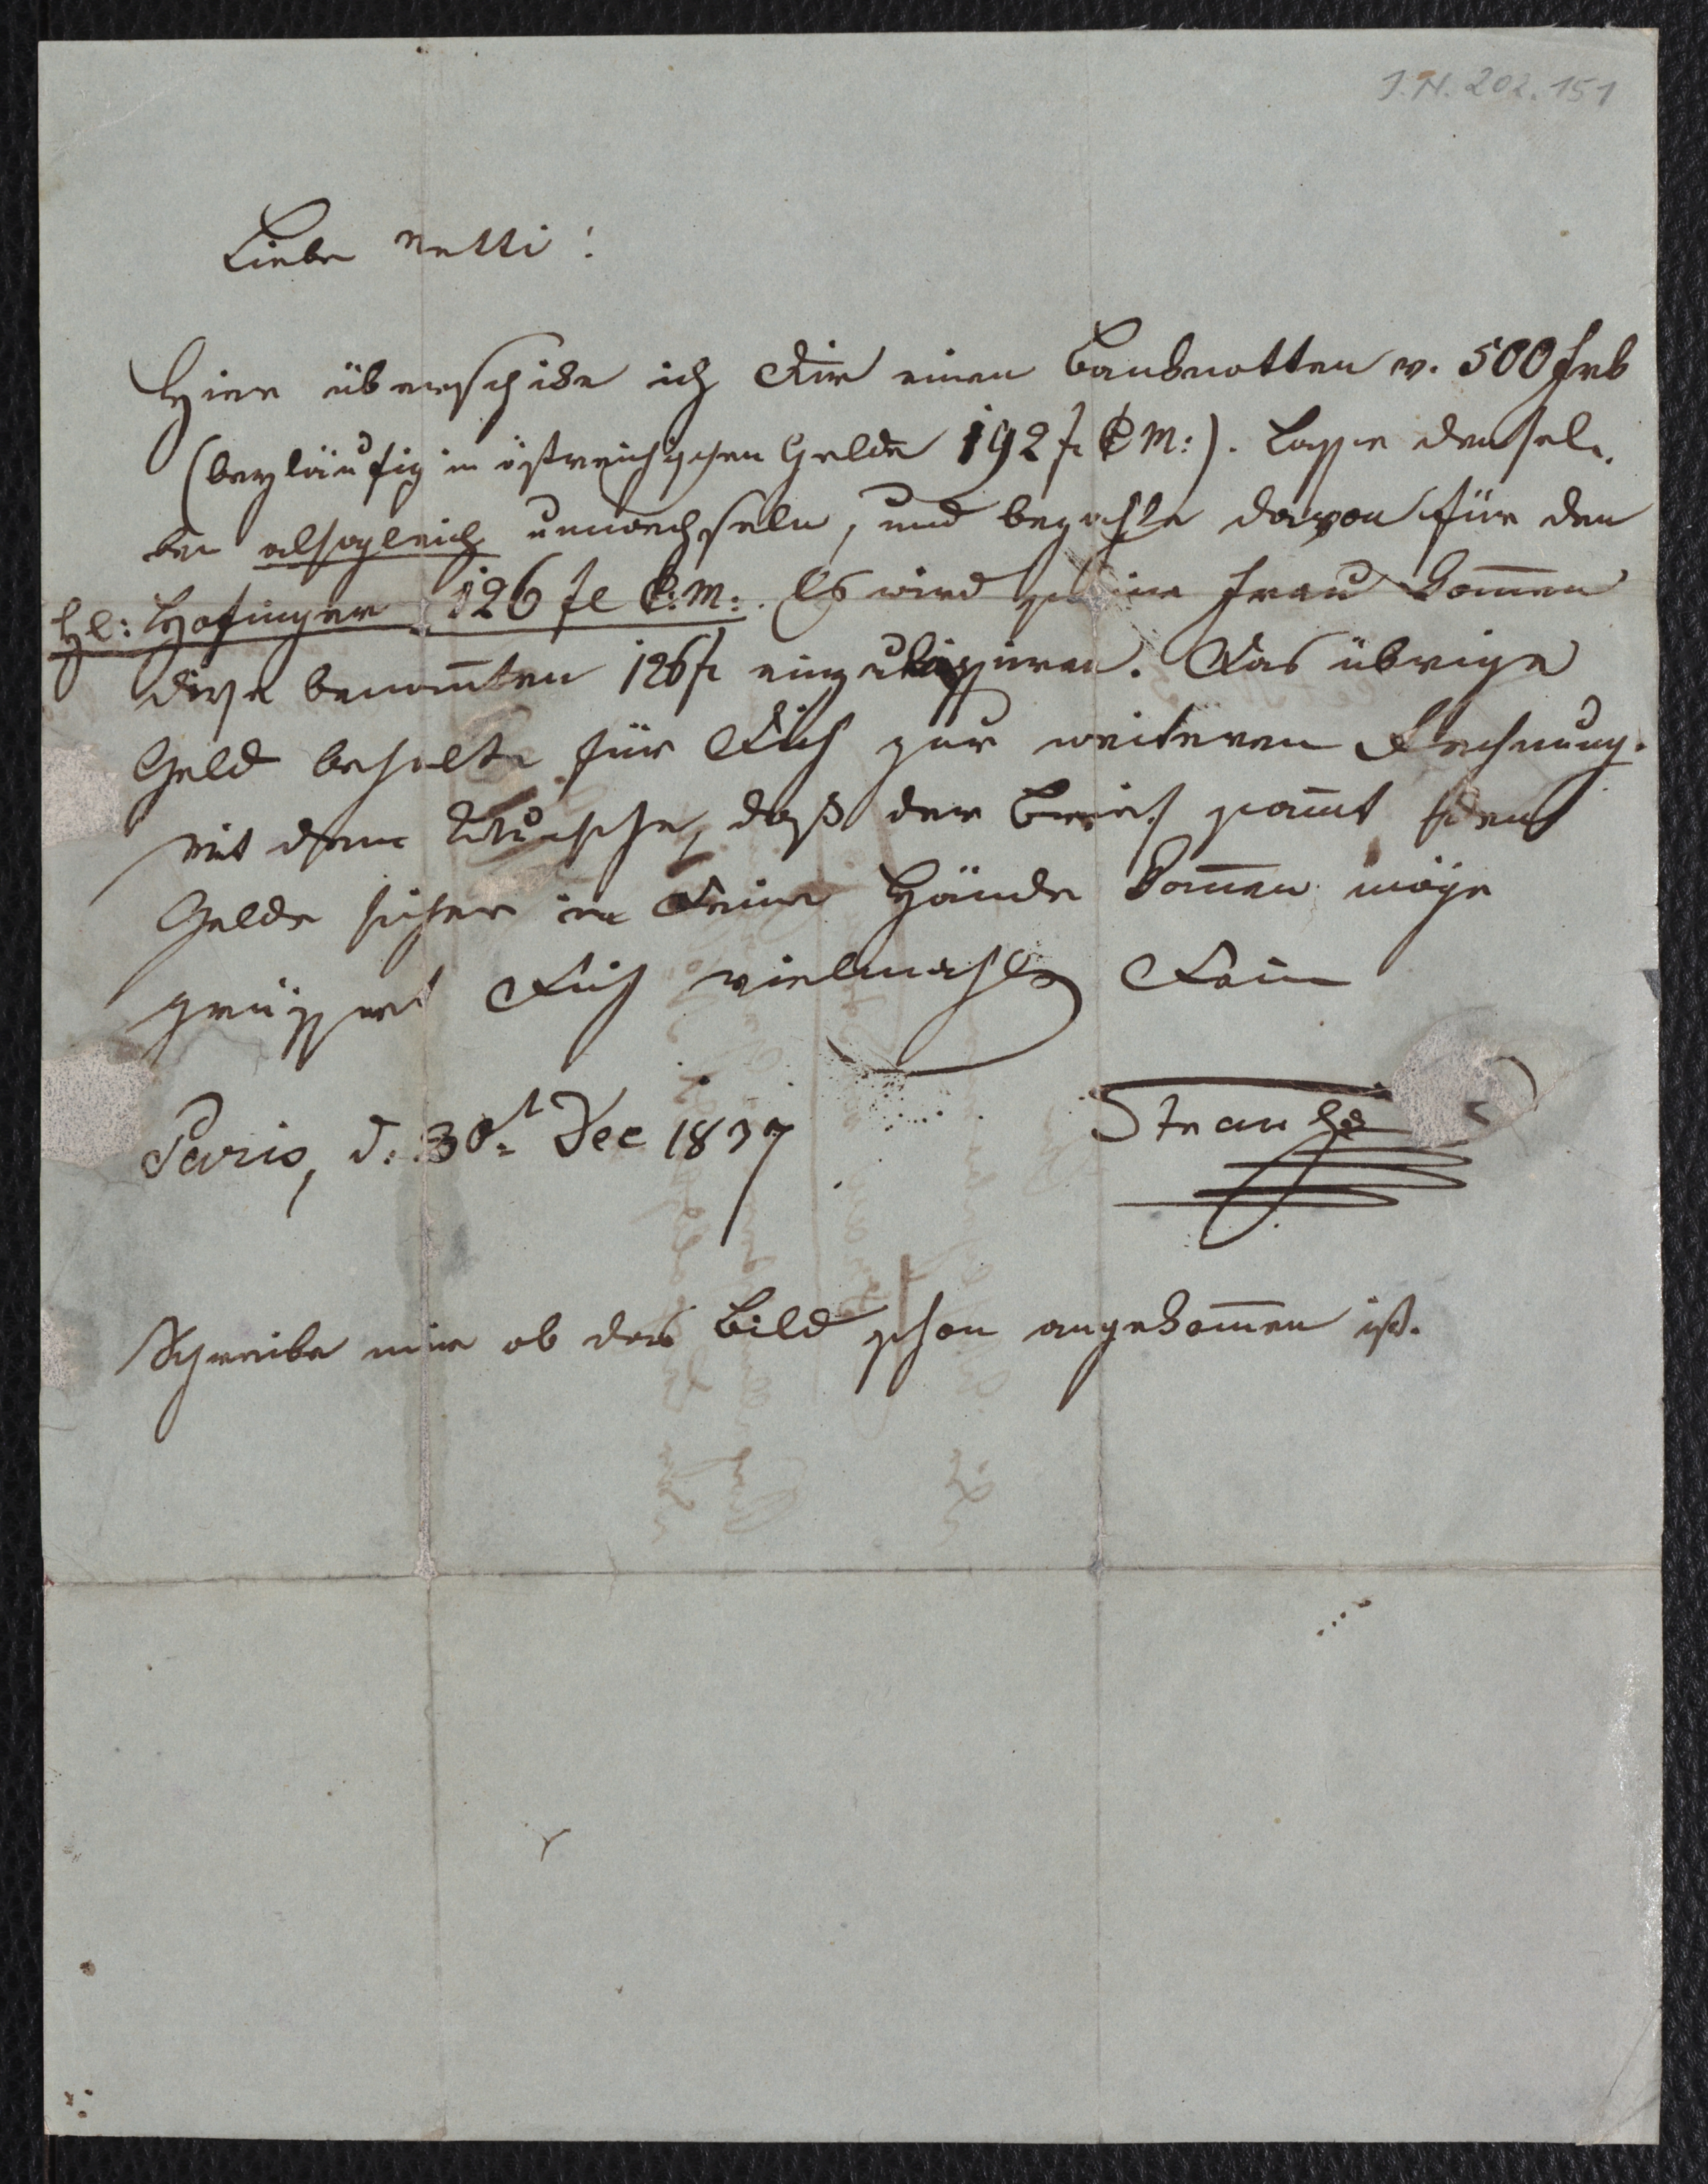 J.N. 202.151
Liebe Netti!
Hier überschike ich Dir einen Banknotten v. 500 Frk
(beyläufig in östreichischen Gelde 192 f C M:). Lasse densel-
ben alsogleich umwechseln, und bezahle davon für den
H: Hofinger 126 fl C:M:. Es wird seine Frau kom̅en
diese benan̅ten 126 f einzukassiren. Das übrige
Geld behalte für Dich zur weiteren Rechnung.
Mit dem Wunsche, daß der Brief sam̅t dem
Gelde sicher in Deine Hände kom̅en möge
grüsset Dich vielmahls Dein
Paris, d: 30t Dec 1837
Strauß
Schreibe mir ob das Bild schon angekom̅en ist.